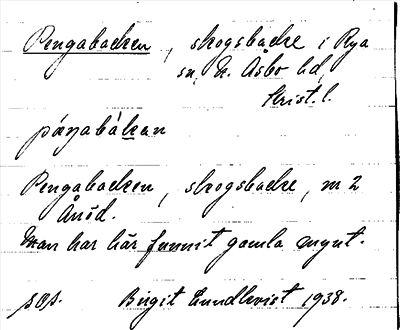 Pengabacken, skogsbacke i Rya
sn, N. Åsbo hd,
Krist. l.
pæŋabàkan
Pengabacken, skogsbacke, nr 2
Anöd.
Man har här funnit gamla mynt.
sop. Birgit Lundkvist 1938.